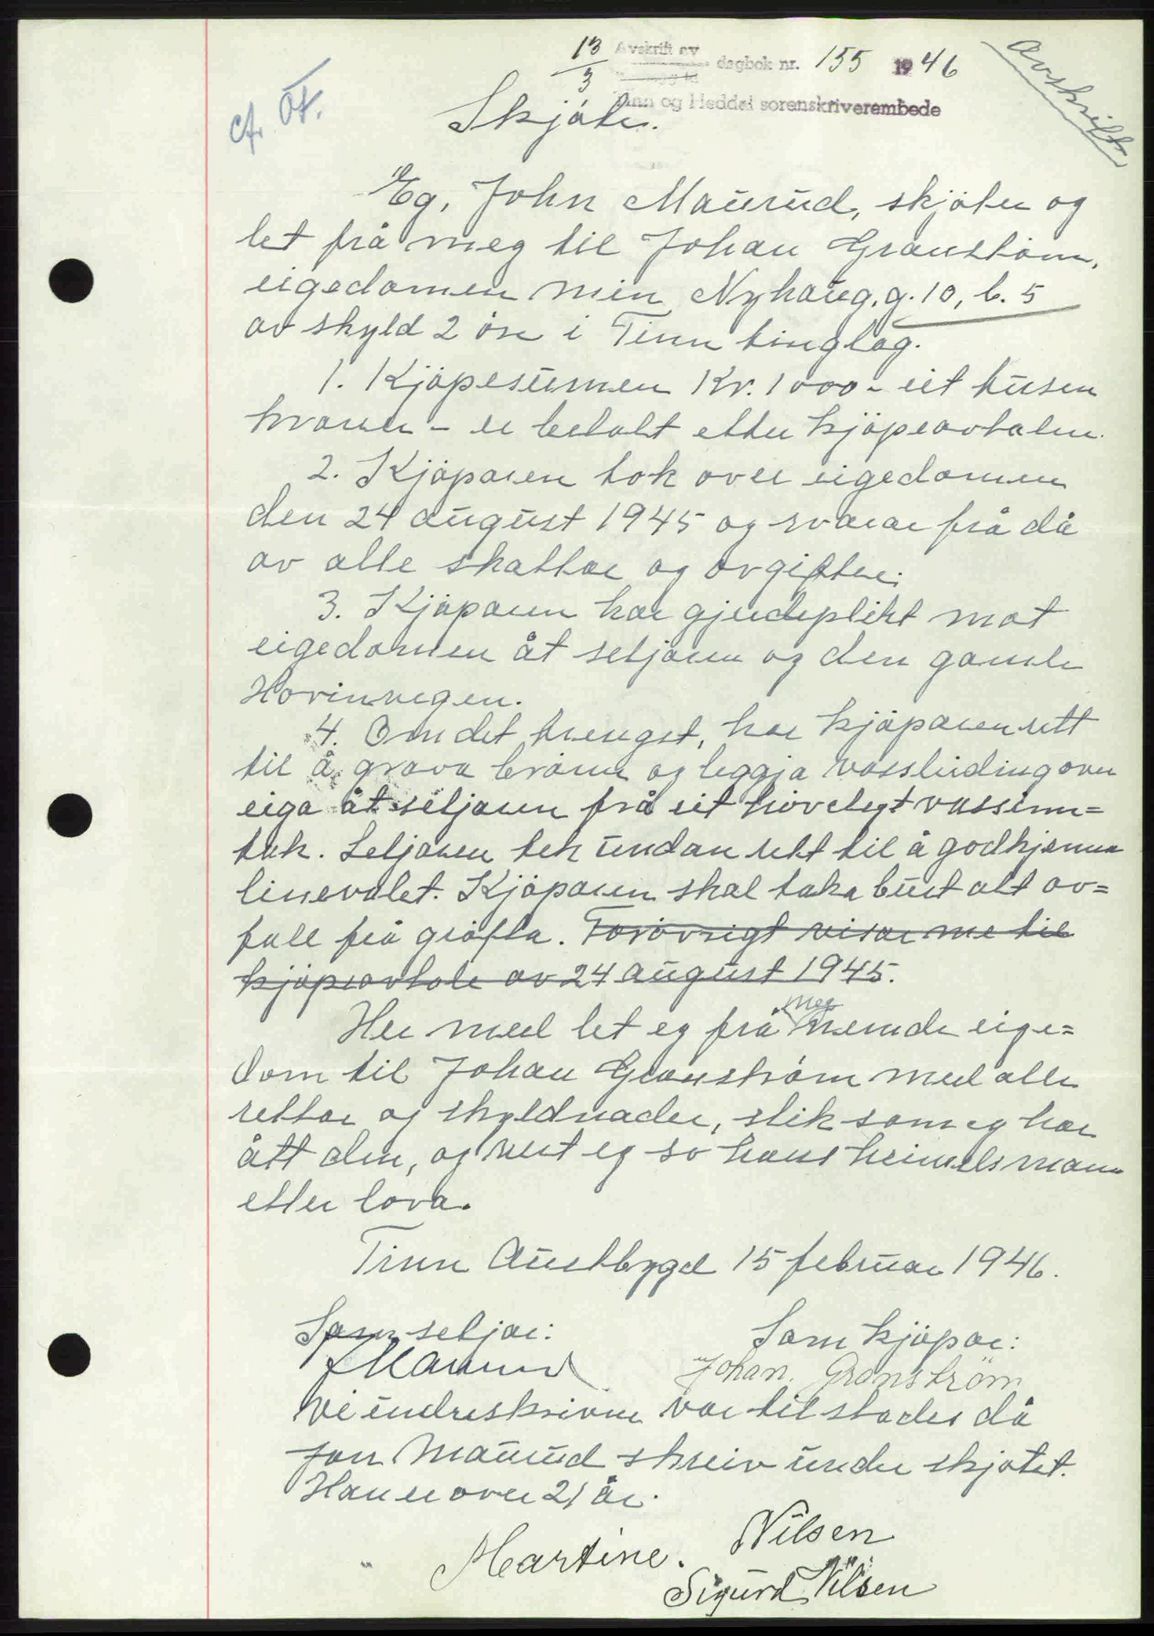 13/3 Avskrift av dagbok nr. 155 1946
Tinn og Heddal sorenskriverembede
Avskrift
cf. ÖT.
Skjöte.
Eg, John Maurud, skjöter og
let frå meg til Johan Granström,
eigedomen min Nyhaug, g. 10, b. 5
av skyld 2 öre i Tinn tinglag.
1. Kjöpesumen Kr. 1000 - eit tusen
kroner - er betalt etter kjöpeavtalen.
2. Kjöparen tok over eigedomen
den 24 august 1945 og svarar frå då
av alle skattar og avgifter.
3. Kjöparen har gjerdeplikt mot
eigedomen åt seljaren og den gamle
Hovinvegen.
4. Om det trengst, har kjöparen rett
til å grava brönn og leggja vassleiding over
eiga åt seljaren frå eit hövelegt vassinn=
tak. Seljaren tek undan rett til å godkjenna
linevalet. Kjöparen skal taka burt alt av=
fall frå gröfta. Foröovrigt visar me til
kjöpeavtale av 24 august 1945.
Her med let eg frå meg nemnde eige=
dom til Johan Granström med alle
rettar og skyldnader, slik som eg har
ått den, og vert eg so hans heimelsmann
etter lova.
Tinn Austbygd 15 februar 1946.
Som seljar: Som kjöpar:
J Maurud Johan. Granström
Vi underskrivne var til stades då
Jon Maurud skreiv under skjötet.
Han er over 21 år.
Martine. Nilsen
Sigurd Nilsen